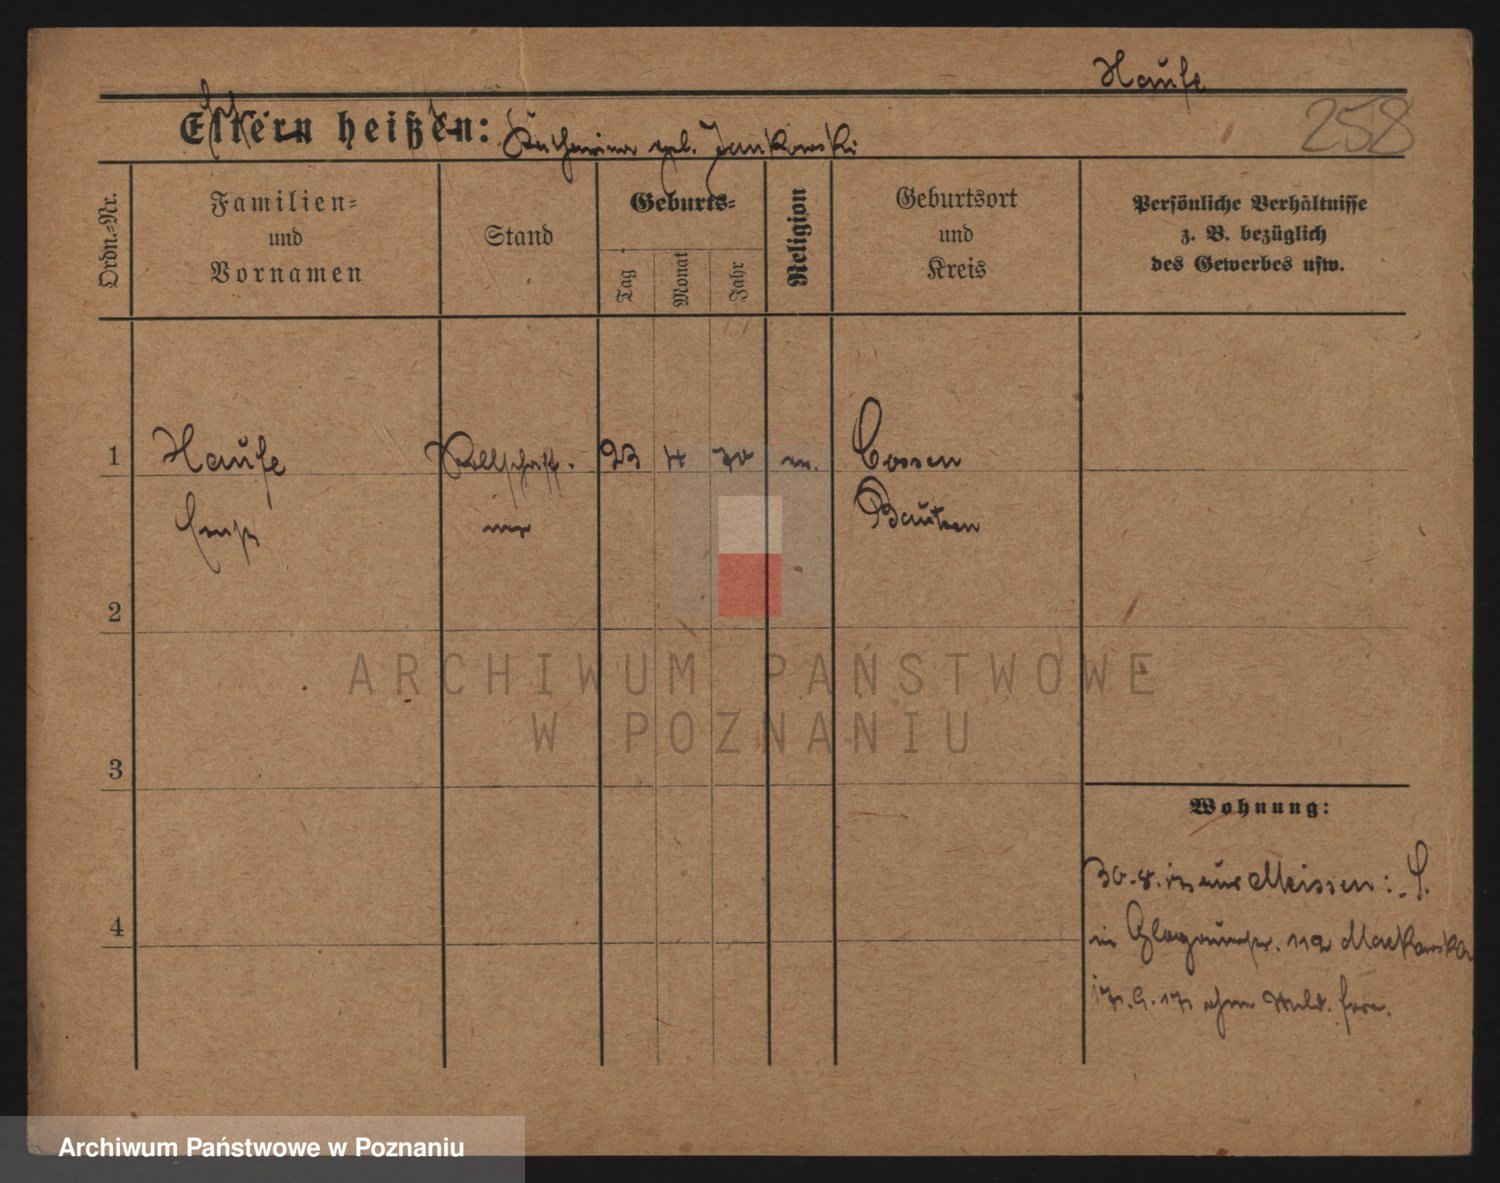 Haufe
258
Eltern heißen: Katharina geb. Jankowski
Ordn.=Nr.
Familien=
und
Vornamen
Stand
Geburts=
Tag
Monat
Jahr
Religion
Geburtsort
und
Kreis
Persönliche Verhältnisse
z. B. bezüglich
des Gewerbes usw.
1 Haufe 23 4 70 Cossen
Ernst Bautzen
2
3
4
Wohnung:
30.8.17 aus Meissen:
in 119 Markowska
17.9.17 ohne Meld. fort.
ARCHIWUM PAŃSTWOWE
W POZNANIU
Archiwum Państwowe w Poznaniu